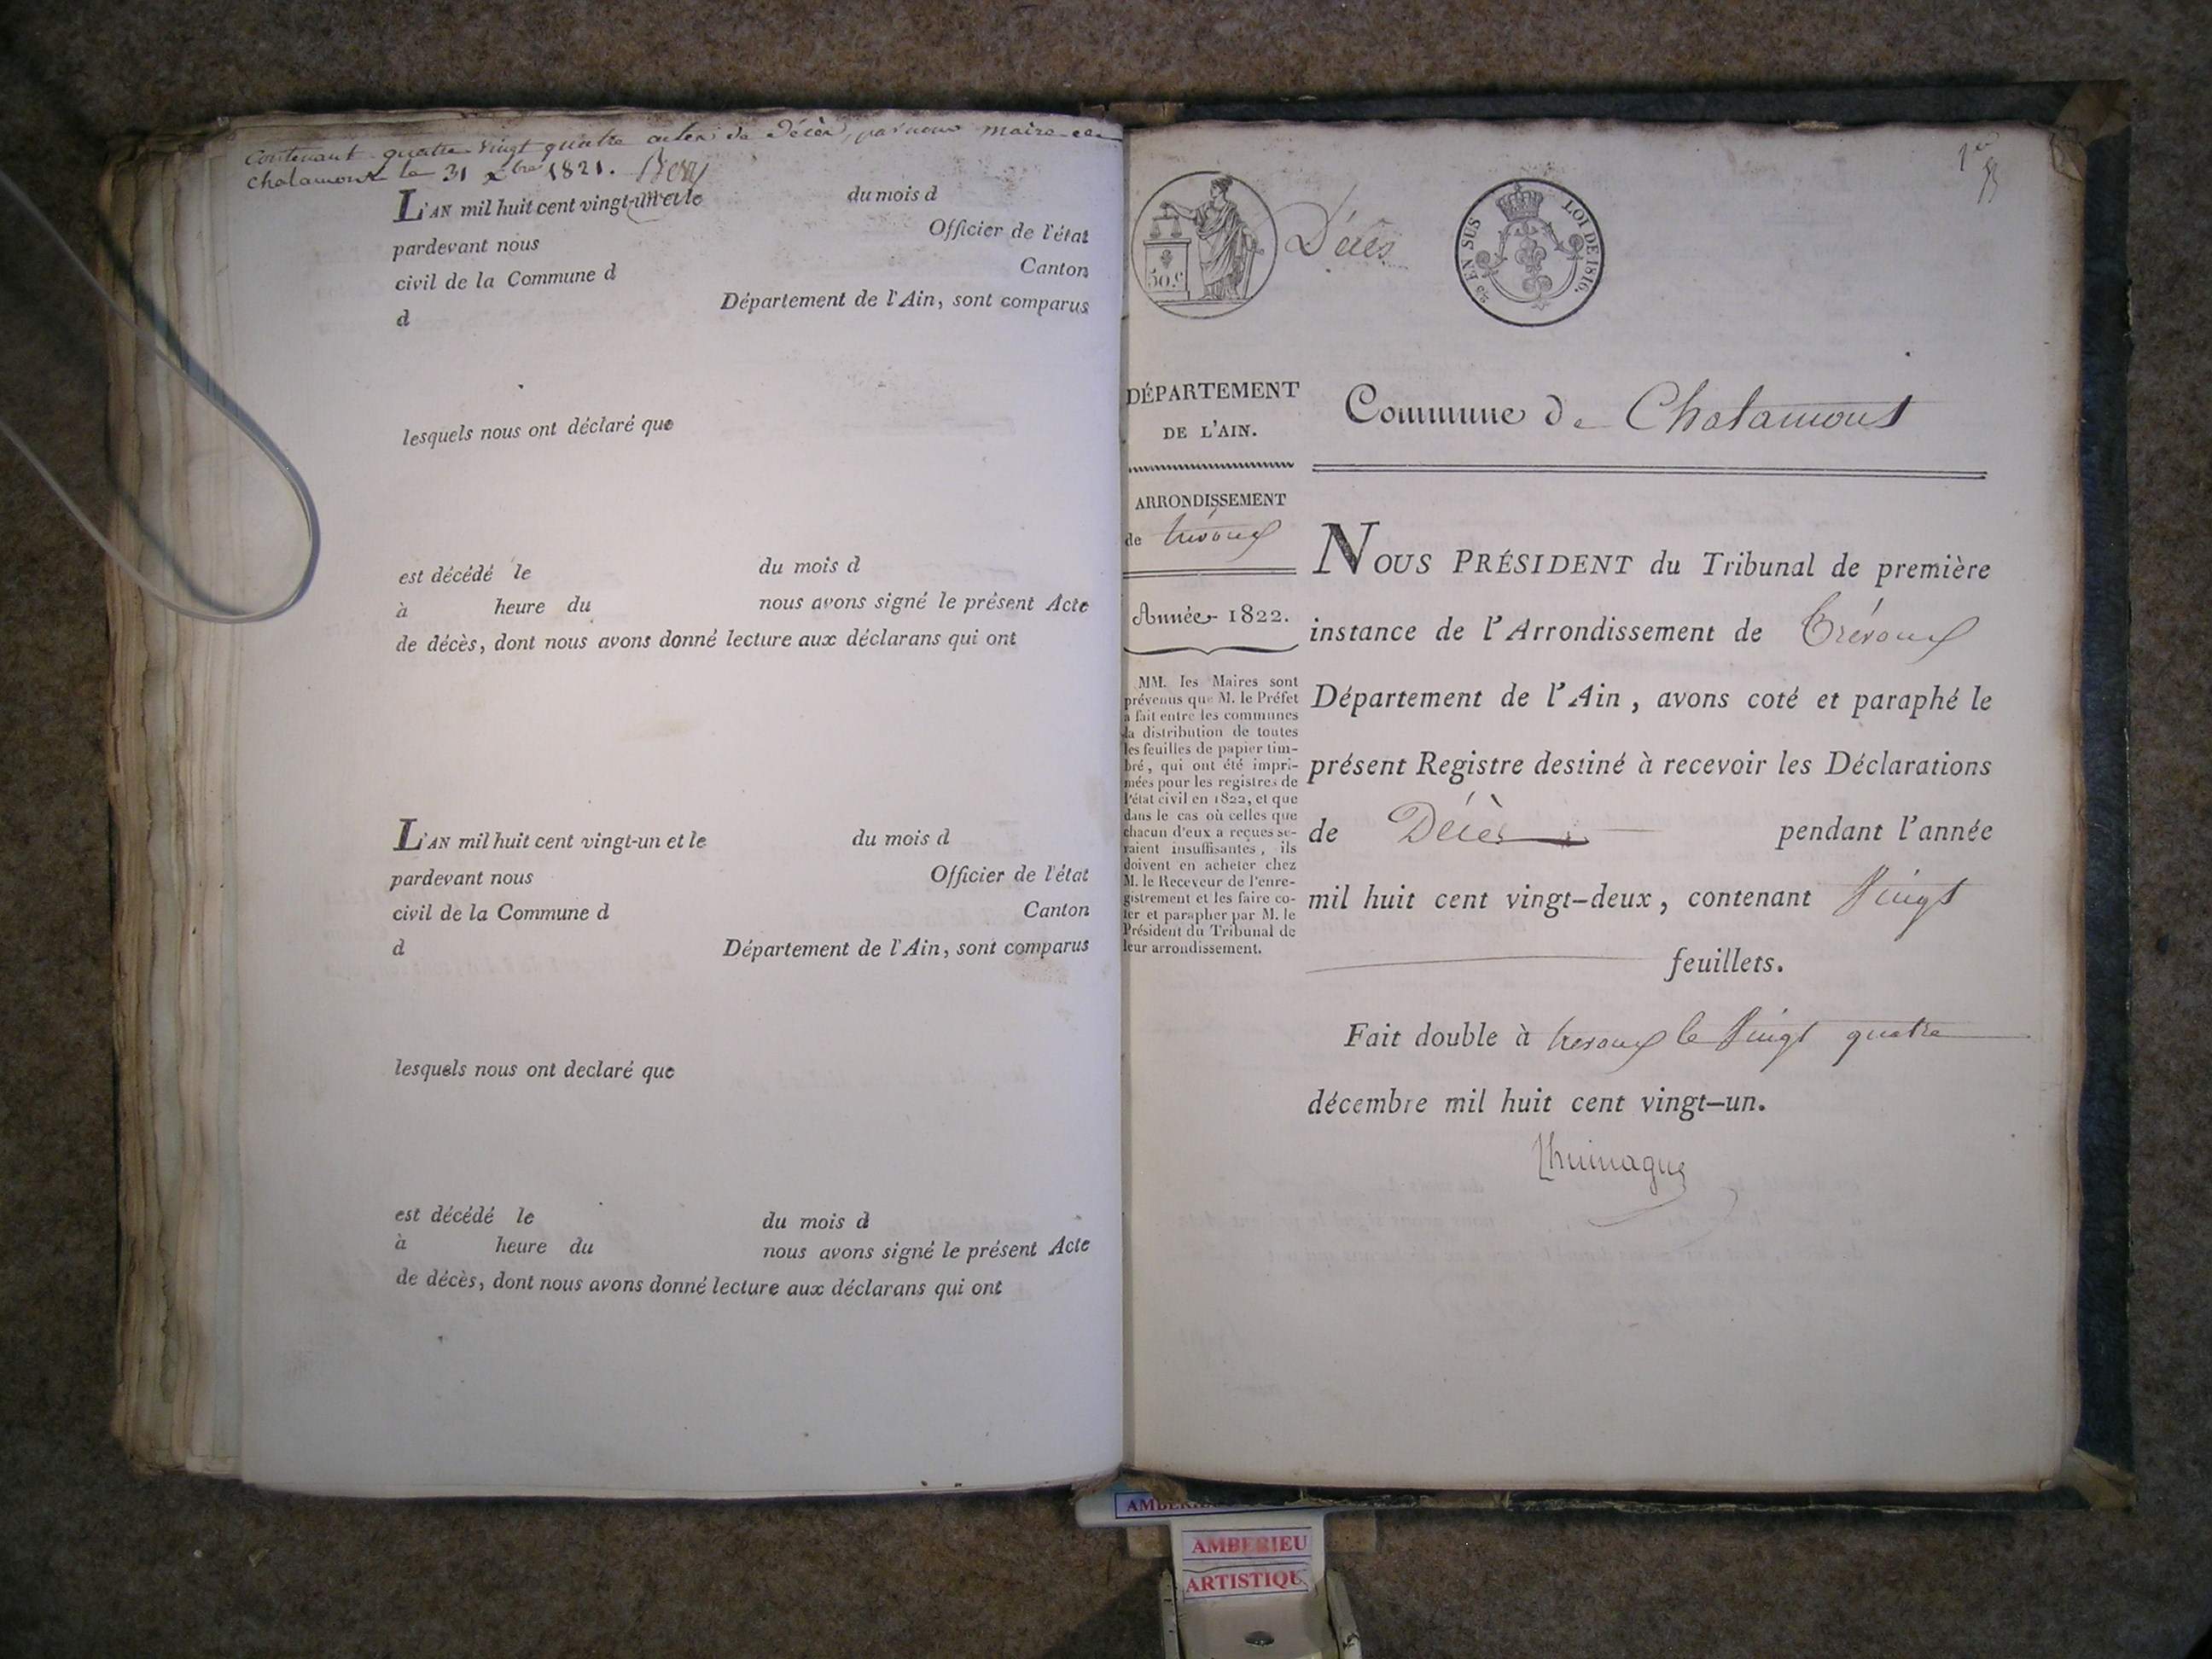 contenant quatre vingt quatre actes de Décès, par nous maire
chalamont le 31 xbre 1821.
L'AN mil huit cent vingt-un et le du mois d
pardevant nous Officier de l'état
civil de la Commune d Canton
d Département de l'Ain, sont comparus
lesquels nous ont déclaré que
est décédé le du mois d
à heure du nous avons signé le présent Acte
de décès, dont nous avons donné lecture aux déclarans qui ont
L'AN mil huit cent vingt-un et le du mois d
pardevant nous Officier de l'état
civil de la Commune d Canton
d Département de l'Ain, sont comparus
lesquels nous ont declaré que
est décédé le du mois d
à heure du nous avons signé le présent Acte
de décès, dont nous avons donné lecture aux déclarans qui ont
1er
50 c.
Décès
25 EN SUS LOI DE 1816.
DÉPARTEMENT
DE L'AIN.
ARRONDISSEMENT
de trévoux
Année 1822.
MM. les Maires sont
prévenus que M. le Préfet
a fait entre les communes
la distribution de toutes
les feuilles de papier tim-
bré, qui ont été impri-
mées pour les registres de
l'état civil en 1822, et que
dans le cas où celles que
chacun d'eux a reçues se-
raient insuffisantes, ils
doivent en acheter chez
M. le Receveur de l'enre-
gistrement et les faire co-
ter et parapher par M. le
Président du Tribunal de
leur arrondissement.
Commune de Chalamont
NOUS PRÉSIDENT du Tribunal de première
instance de l'Arrondissement de Trévoux
Département de l'Ain, avons coté et paraphé le
présent Registre destiné à recevoir les Déclarations
de Décès pendant l'année
mil huit cent vingt-deux, contenant Vingt
feuillets.
Fait double à trevoux le Vingt quatre
décembre mil huit cent vingt-un.
AMBERIEU
ARTISTIQU